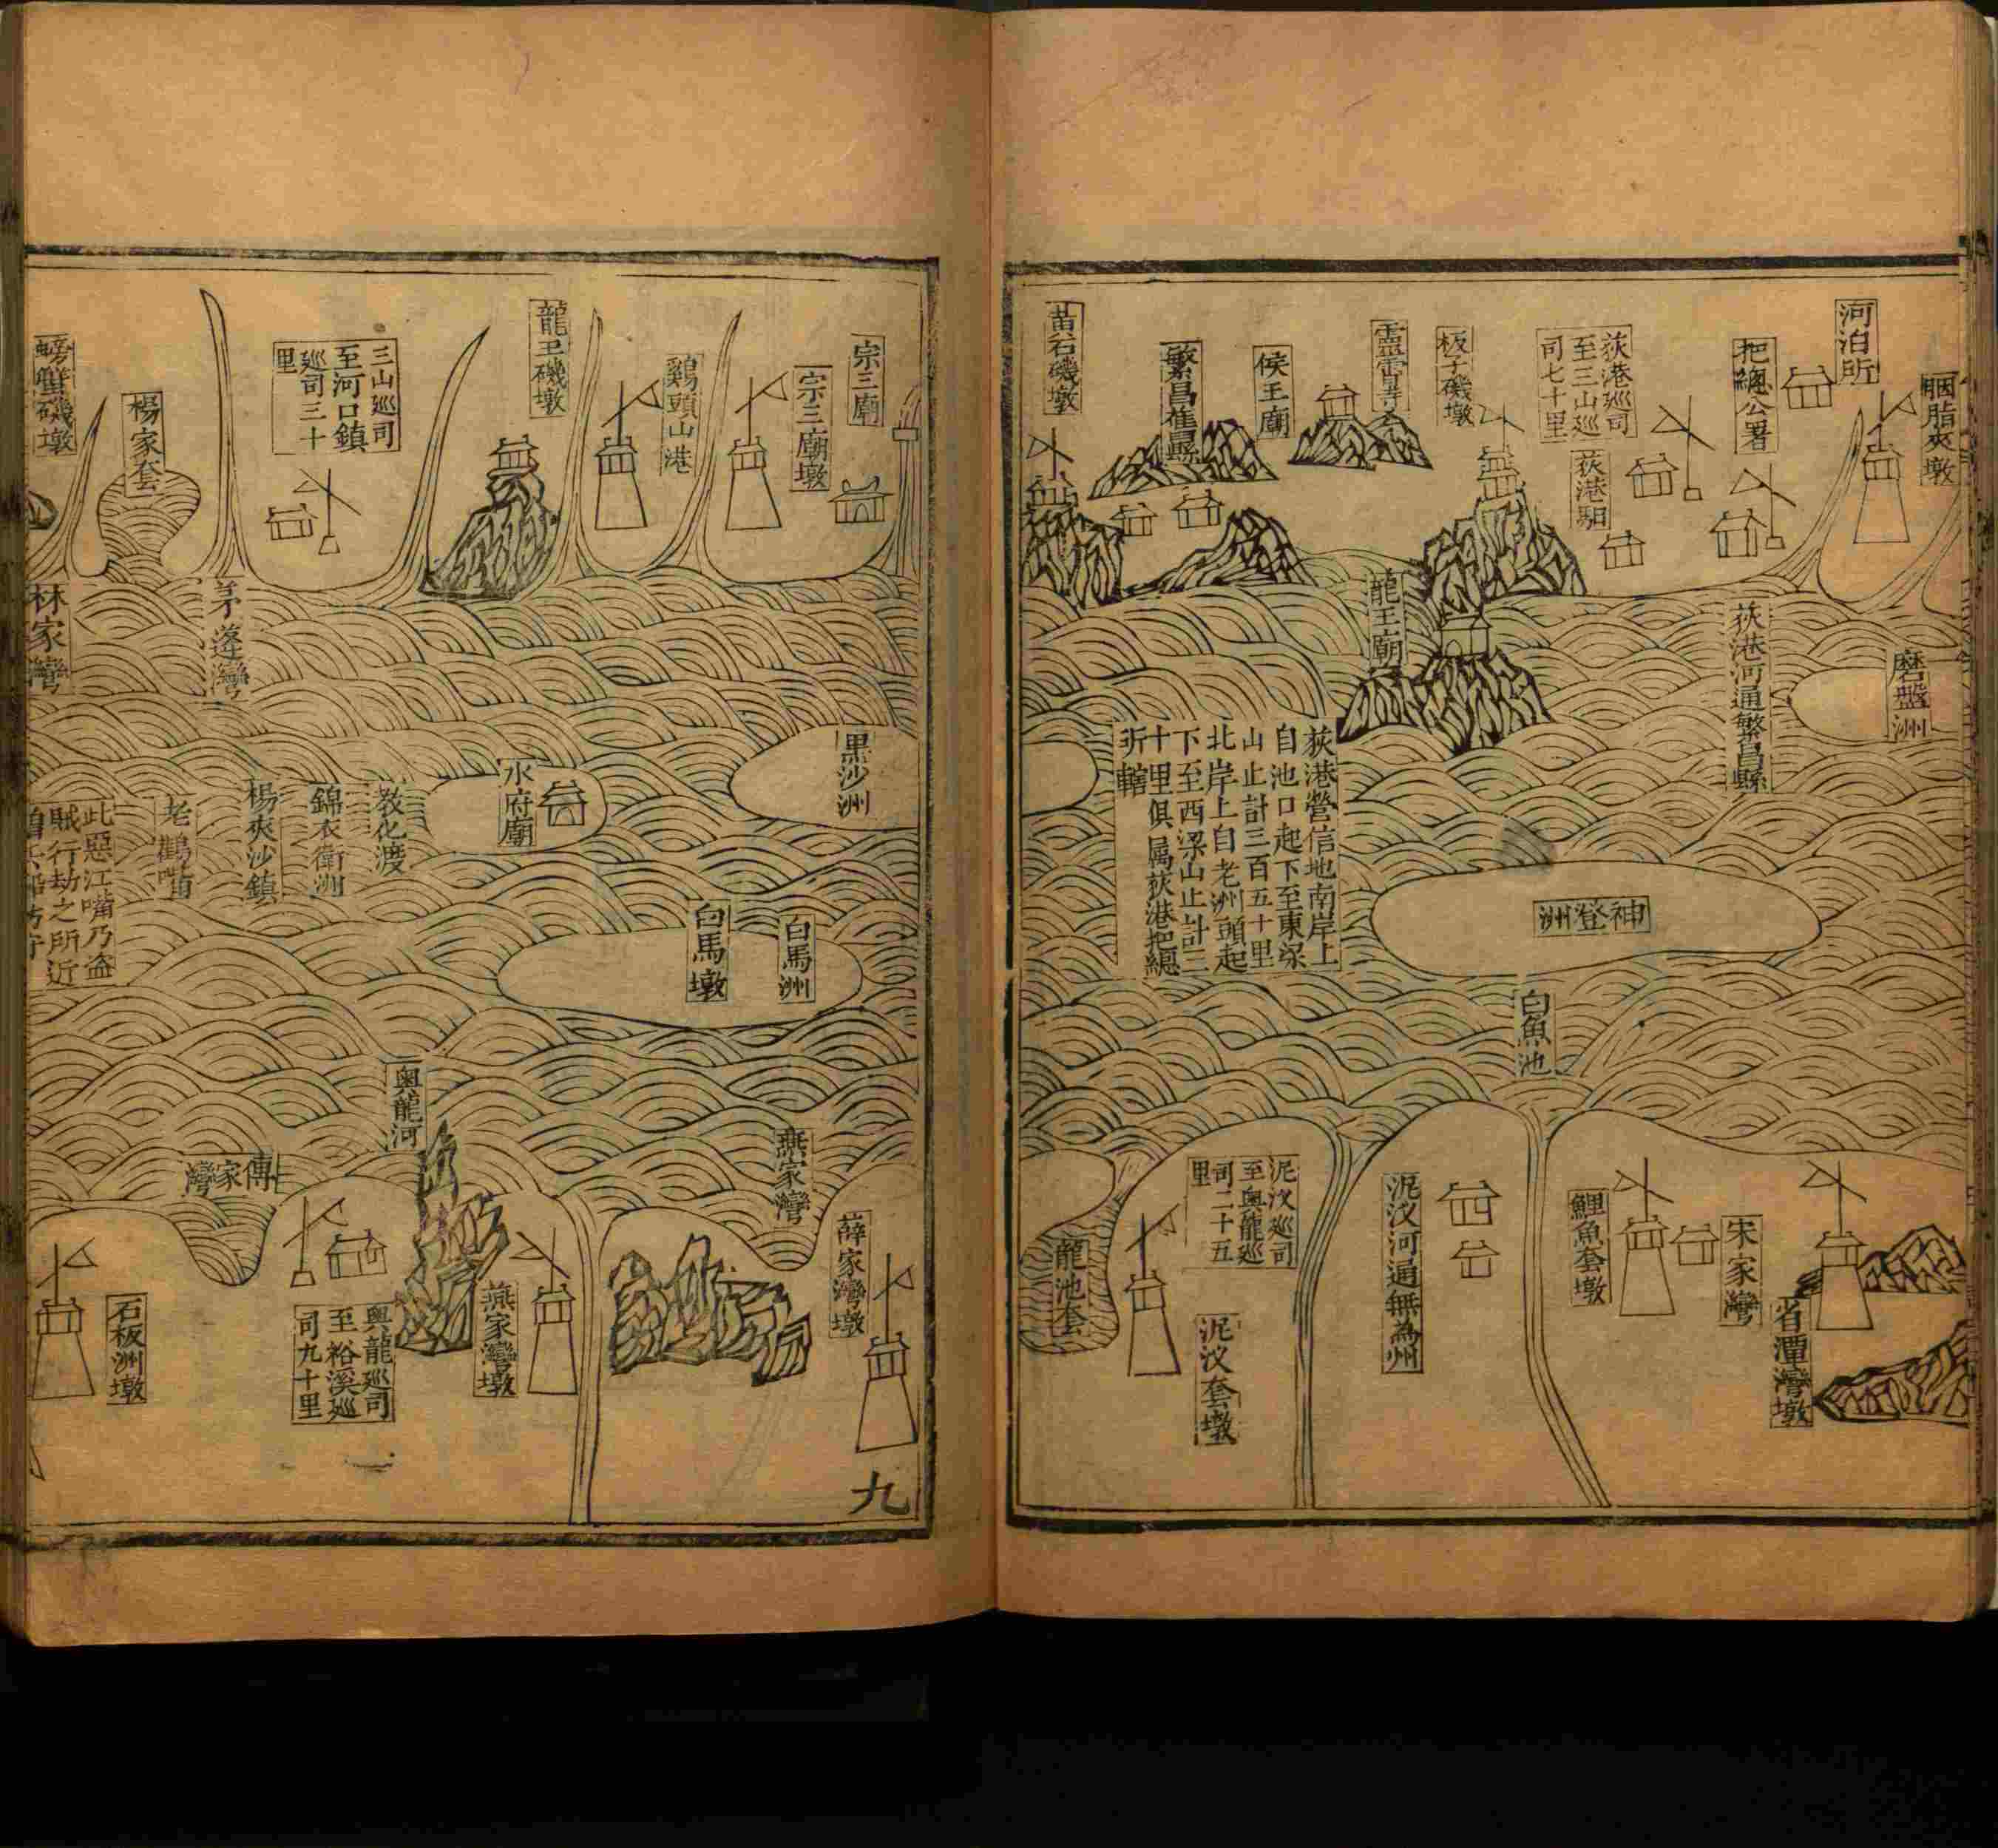 胭脂夾墩
河泊所
把總公署
荻港巡司
至三山巡
司七十里
荻港馹
板子磯墩
侯王廟
繁昌舊縣
黃石磯墩
磨盤洲
荻港河通繁昌縣
龍王廟
荻港營信地南岸上
自池口起下至東梁
山止計三百五十里
北岸上自老洲頭起
下至西梁山止計三
十里俱属荻港把總
所轄
神登洲
白魚池
省潭灣墩
宋家灣
鯉魚套墩
泥汊河通無為州
泥汊巡司
至奥龍巡
司二十五
里
泥汊套墩
龍池套
宗三廟
宗三廟墩
鷄頭山港
龍王磯墩
三山巡司
至河口鎮
巡司三十
里
楊家套
螃蟹磯墩
茅蓬灣
林家灣
黒沙洲
水府廟
教化渡
錦衣衛洲
楊夾沙鎮
老鸛嘴
此惡江嘴乃盗
賊行劫之所近
白馬洲
白馬墩
奥龍河
燕家灣
傅家灣
薛家灣墩
燕家灣墩
奥龍巡司
至裕溪巡
司九十里
石板洲墩
九